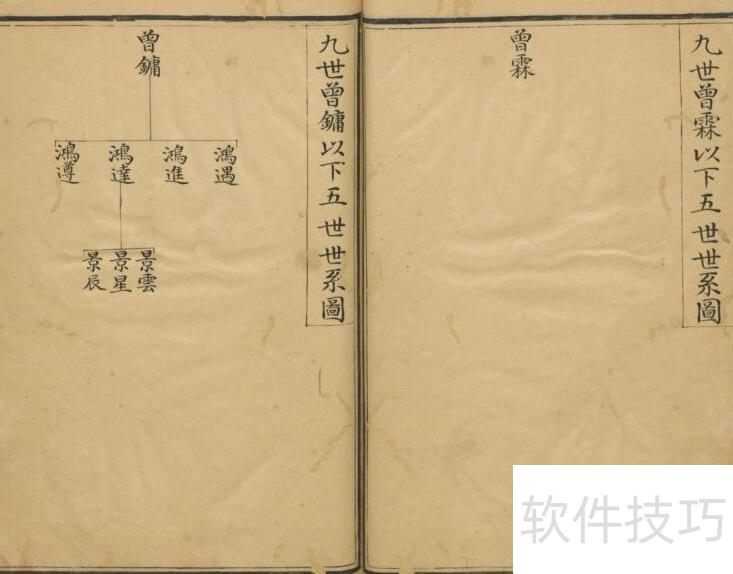 九世曾霖以下五世世系圖
曾霖
九世曾鏞以下五世世系圖
曾鏞
鴻遇
鴻進
鴻達
鴻遵
景雲
景星
景辰
软件技巧